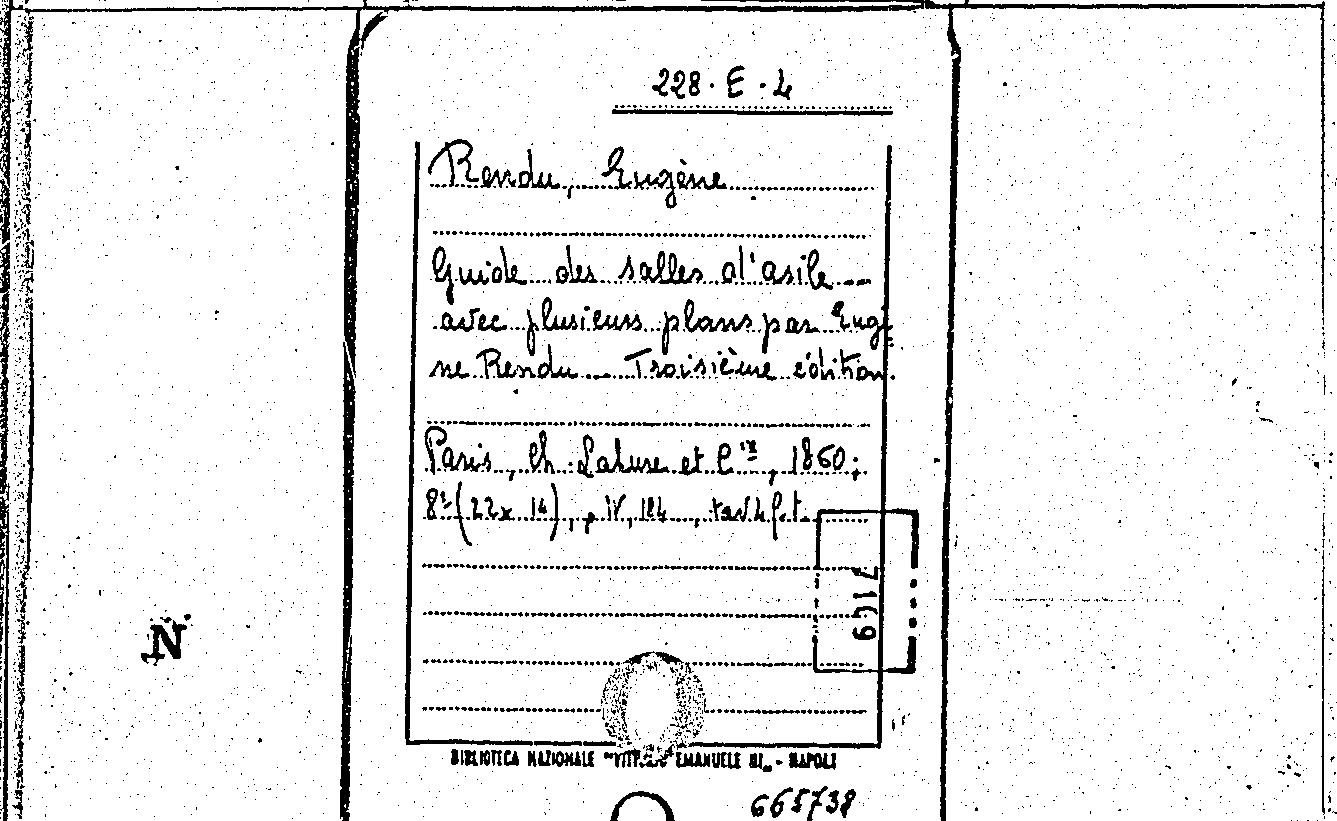 228. E. 4
Rendu, Eugène
Guide des salles d'asile ...
avec plusieurs plans par Eugè
ne Rendu ... Troisième édition.
Paris, Ch. Lahure et C.ie, 1860;
8º (22 x 14), p IV, 184, tav 4 f.t.
N
BIBLIOTECA NAZIONALE "VITT. EMANUELE III„ - NAPOLI
665738